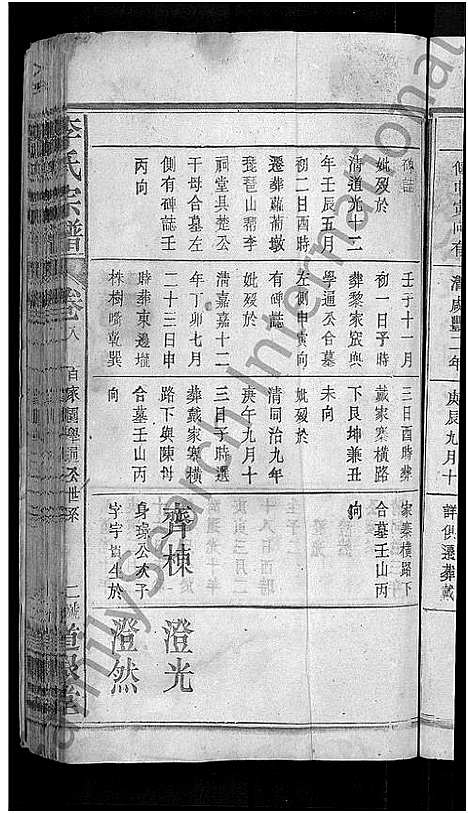 庚辰九月十
詳俱遷葬戴
碑誌
妣歿於
清道光十二
年壬辰五月
初二日酉時
遷葬蘿蔔墩
琵琶山豬李
祠堂县楚公
干母合墓左
側有碑誌壬
丙向
壬子十一月
初一日子時
葬黎家窊與
學通公合墓
左側申寅向
有碑誌
妣歿於
清嘉慶十二
年丁卯七月
二十三日申
時葬東邊壠
株樹嘴乾巽
向
三日酉時葬
戴家寨橫路
下艮坤兼丑
未向
妣歿於
清同治九年
庚午九月十
三日子時選
葬戴家寨橫
路下與陳母
合墓壬山丙
向
家寨橫路下
合墓壬山丙
向
齊棟
身瑤公次子
字宇 生於
澄光
澄然
李氏宗譜
卷八
世系
FamilySearch International